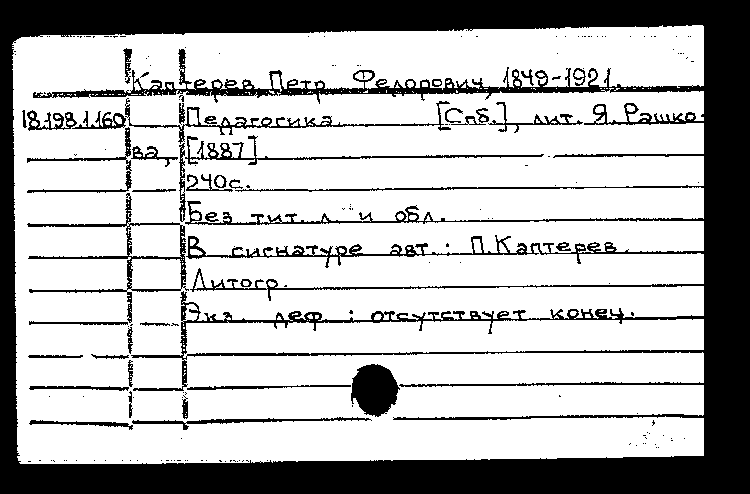 Каптерев, Петр Федорович, 1849-1921.
18.198.1.160 Педагогика. [Спб.], лит. Я. Рашко-
ва, [1887].
240с.
Без тит. л. и обл.
В сигнатуре авт.: П.Каптерев.
Литогр.
Экз. деф.: отсутствует конец.